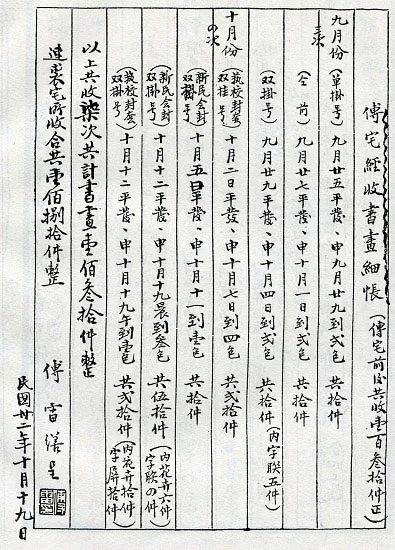 傅宅經收書畫細帳(傅宅前後共收壹百叁拾件正)
九月份 三次
(單掛号)九月廿五平發、申九月廿九到弍包 共拾件
(仝前)九月廿七平發、申十月一日到弍包 共拾件
(双掛号)九月廿九平發、申十月四日到弍包 共拾件(內字联五件)
十月份 の次
(藝校封套 双挂号)十月二日平發、申十月七日到四包 共弍拾件
(新民会封 双掛号)十月五日平發、申十月十一到壹包 共拾件
(新民会封 双掛号)十月十二平發、申十月十九晨到叁包 共伍拾件(內花卉六件 字联の件)
(藝校封套 双掛号)十月十二平發、申十月十九午到壹包 共弍拾件(內花卉拾件 字屏拾件)
以上共收柒次共計書畫壹佰叁拾件整
連裘宅所收合共壹佰捌拾件整
傅雷繕呈
民國卅二年十月十九日